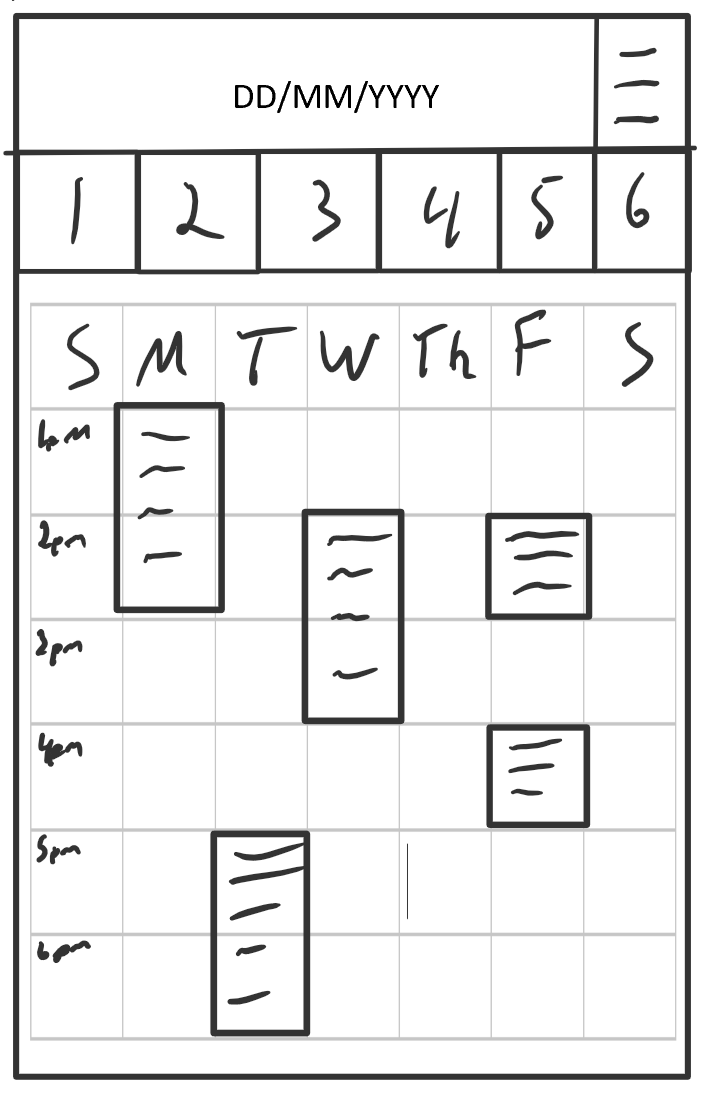 DD/MM/YYYY
1 2 3 4 5 6
S M T W Th F S
2pm
3pm
4pm
5pm
6pm